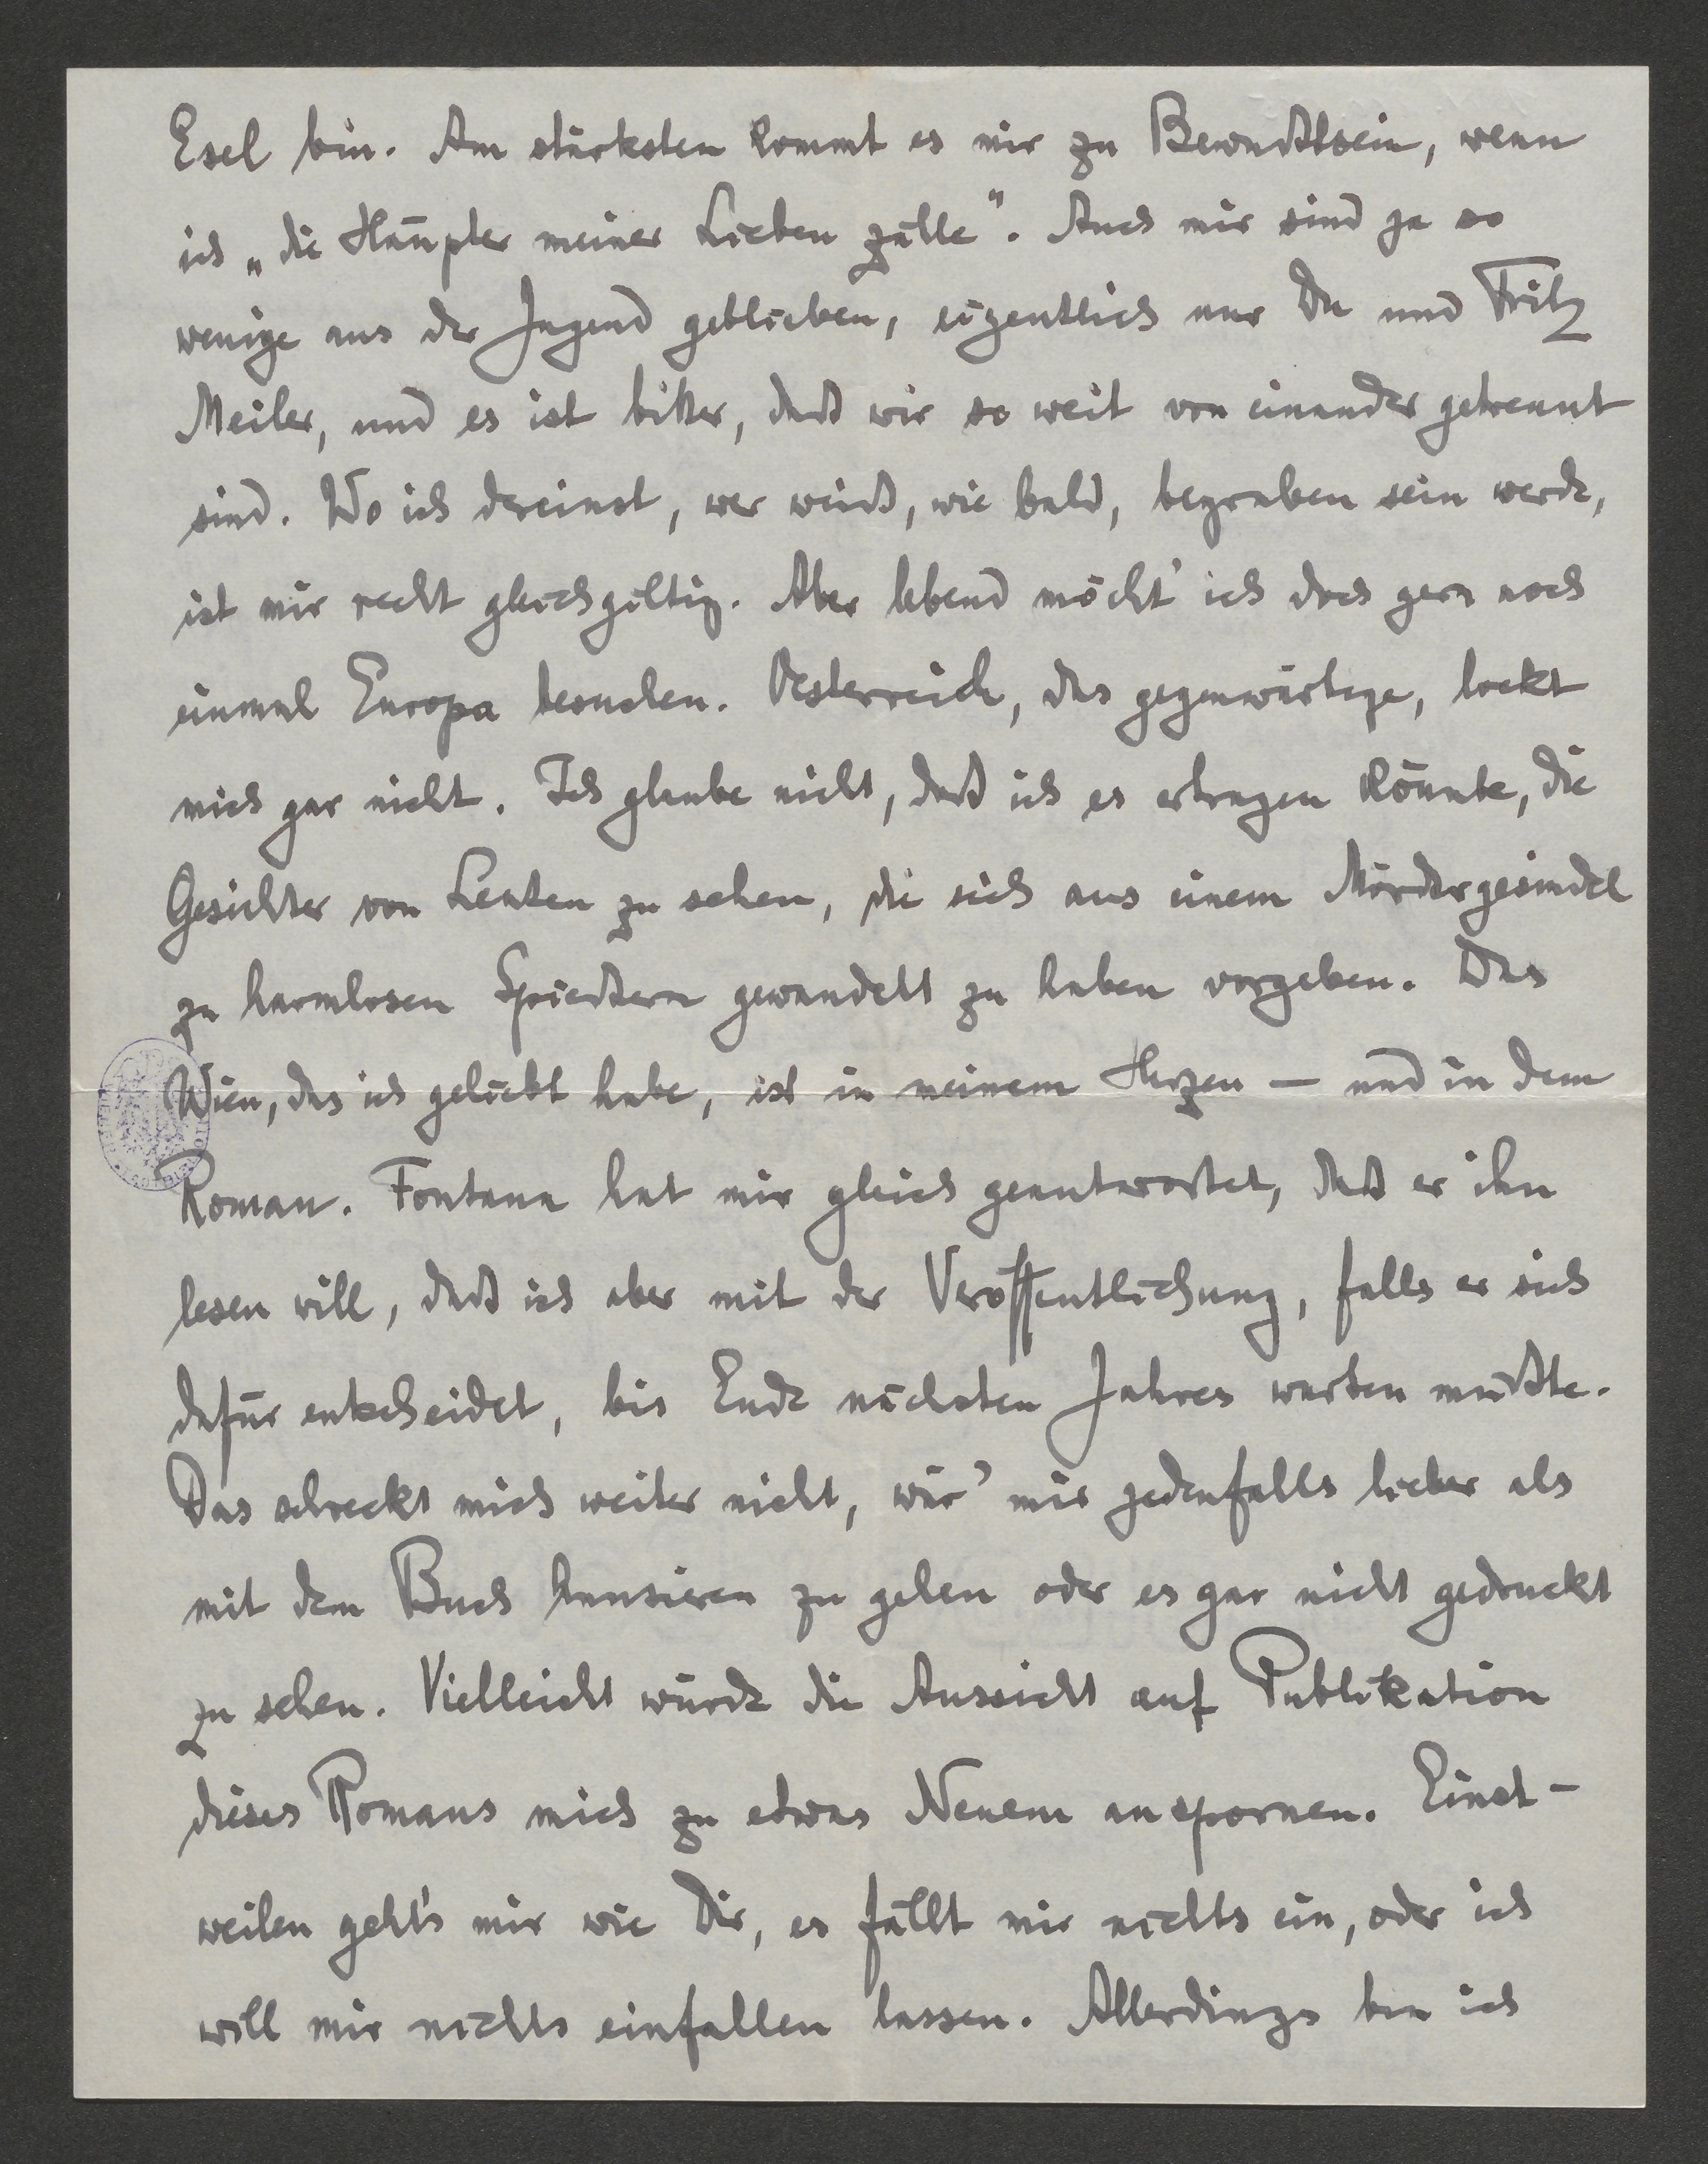 Esel bin. Am stärksten kommt es mir zu Bewußtsein, wenn
ich „die Häupter meiner Lieben zähle". Auch mir sind ja so
wenige aus der Jugend geblieben, eigentlich nur Du und Fritz
Meiler, und es ist bitter, daß wir so weit von einander getrennt
sind. Wo ich dereinst, wer weiß, wie bald, begraben sein werde,
ist mir recht gleichgiltig. Aber lebend möcht' ich doch gern noch
einmal Europa besuchen. Oesterreich, das gegenwärtige, lockt
mich gar nicht. Ich glaube nicht, daß ich es ertragen könnte, die
Gesichter von Leuten zu sehen, die sich aus einem Mördergesindel
zu harmlosen Spießern gewandelt zu haben vorgeben. Das
Wien, das ich geliebt habe, ist in meinem Herzen — und in dem
Roman. Fontana hat mir gleich geantwortet, daß er ihn
lesen will, daß ich aber mit der Veröffentlichung, falls er sich
dafür entscheidet, bis Ende nächsten Jahres warten müßte.
Das schreckt mich weiter nicht, wär' mir jedenfalls lieber als
mit dem Buch hausieren zu gehen oder es gar nicht gedruckt
zu sehen. Vielleicht würde die Aussicht auf Publikation
dieses Romans mich zu etwas Neuem anspornen. Einst-
weilen geht's mir wie Dir, es fällt mir nichts ein, oder ich
will mir nichts einfallen lassen. Allerdings bin ich